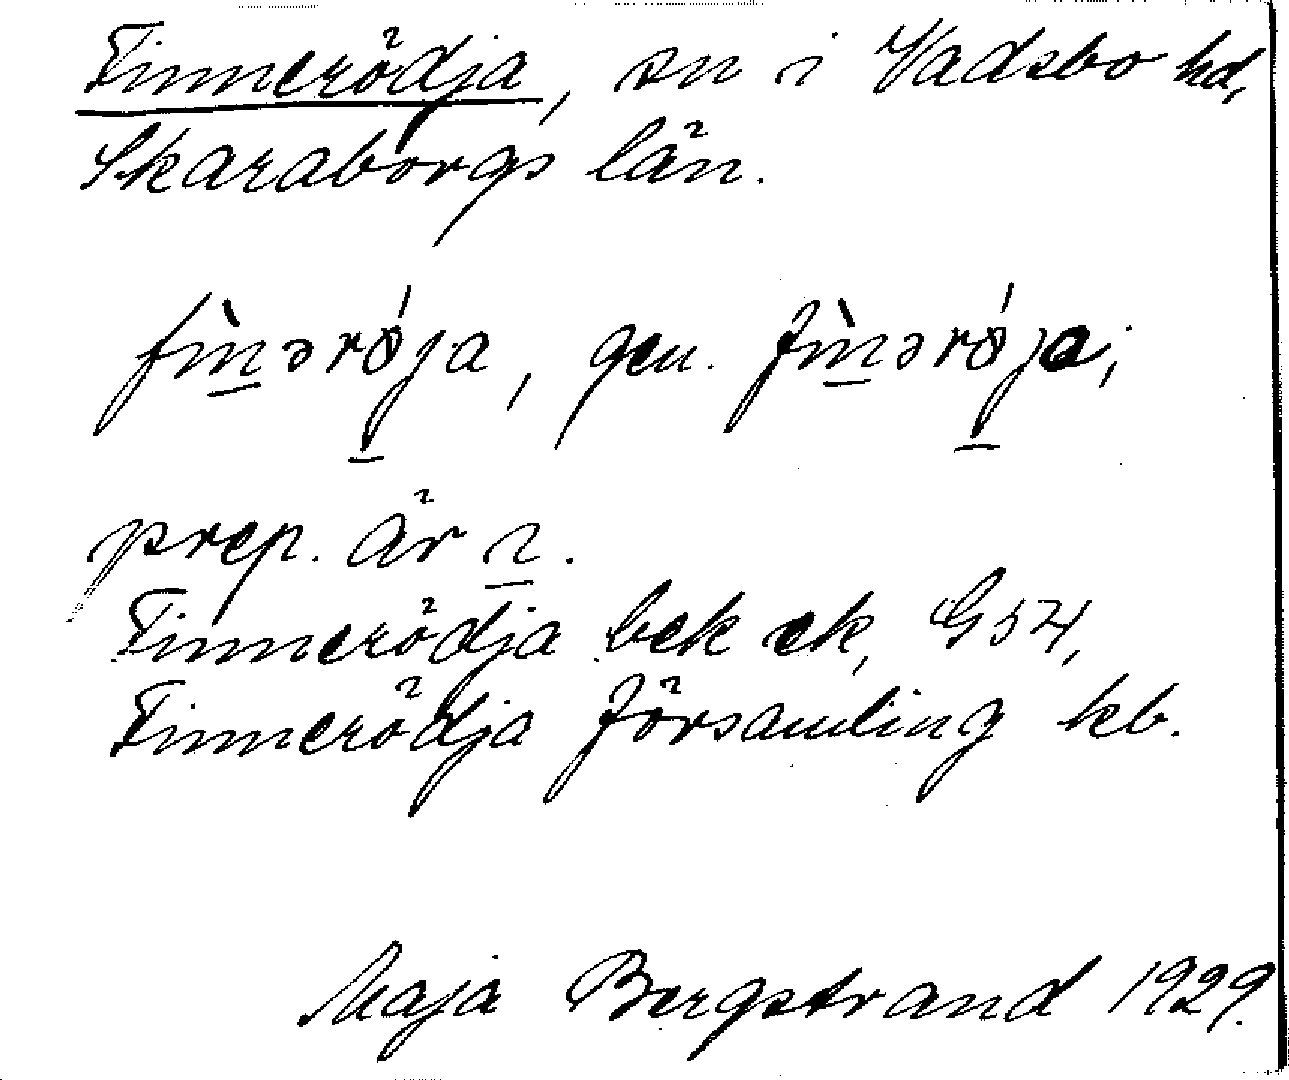 Finnerödja, sn i Vadsbo hd,
Skaraborgs län.
fìnərǿja, gen. fìnərǿja;
prep. är i.
Finnerödja bek ek, G54,
Finnerödja församling kb.
Maja Bergstrand 1929.